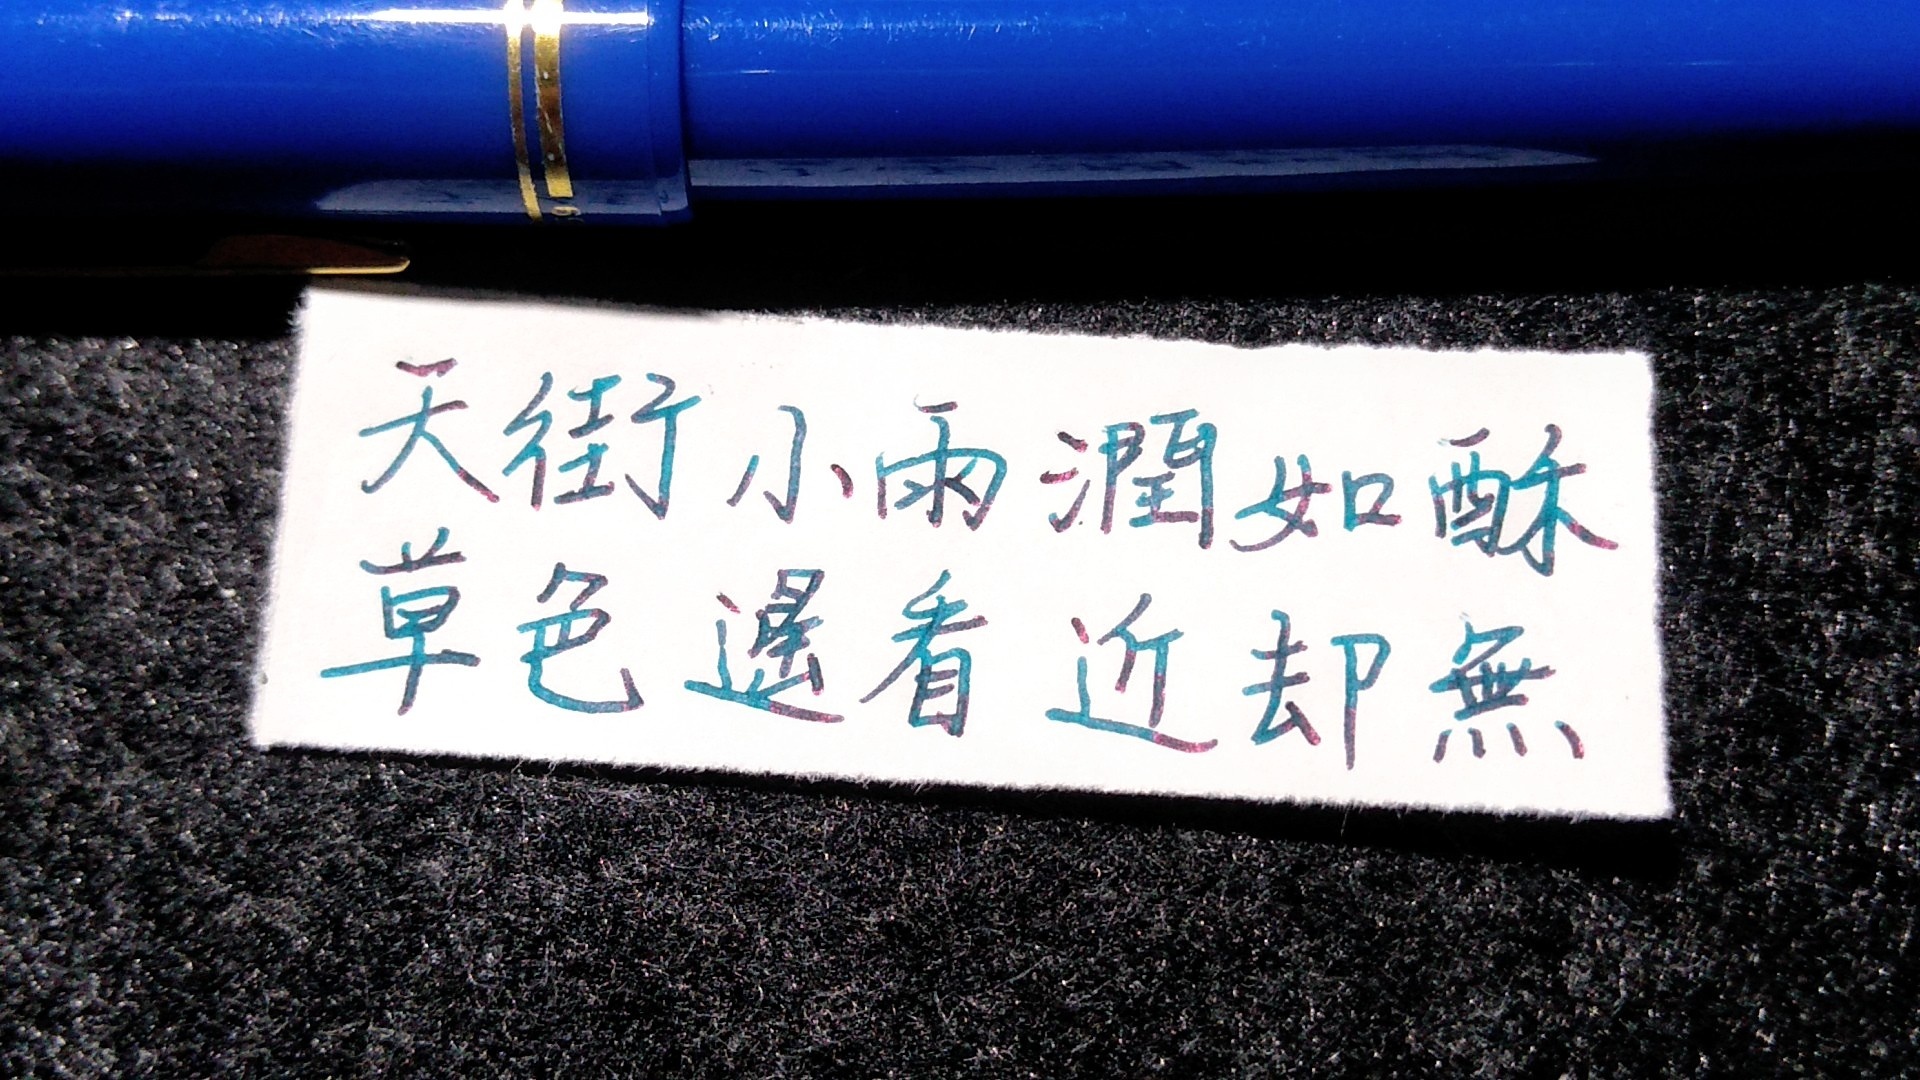 天街小雨潤如酥
草色遙看近却無